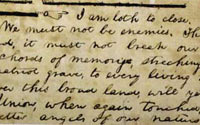 I am loth to close.
We must not be enemies. Th
d, it must not break our
chords of memory, streching
atriot grave, to every living
ver this broad land, will ye
Union, when again touched
etter angels of our nature